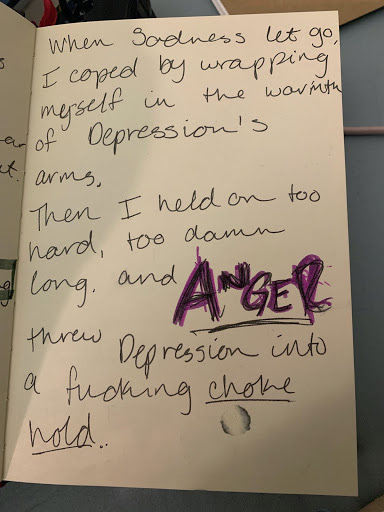 When Sadness let go,
I coped by wrapping
myself in the warmth
of Depression's
arms.
Then I held on too
hard, too damn
long. and ANGER
threw Depression into
a fucking choke
hold..